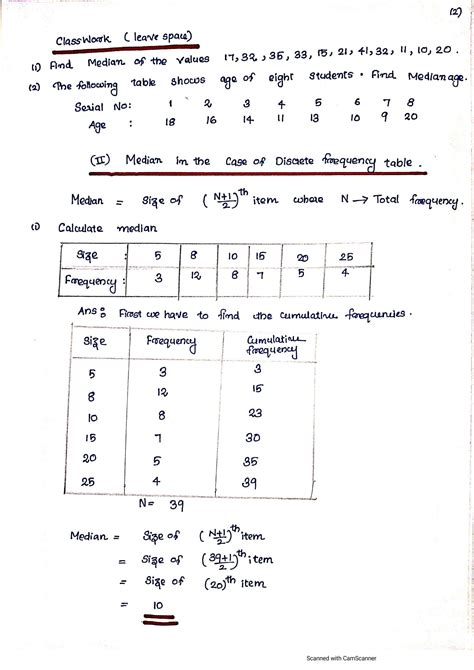 (2)
Classwork (leave space)
(1) Find Median of the values 17, 32, 35, 33, 15, 21, 41, 32, 11, 10, 20.
(2) The following table shows age of eight students. Find Median age.
Serial No: 1 2 3 4 5 6 7 8
Age : 18 16 14 11 13 10 9 20
(II) Median in the Case of Discrete frequency table.
Median = Size of (N+1/2)th item where N → Total frequency.
(1) Calculate median
Size : 5 8 10 15 20 25
Frequency : 3 12 8 7 5 4
Ans : First we have to find the cumulative frequencies.
Size Frequency Cumulative frequency
5 3 3
8 12 15
10 8 23
15 7 30
20 5 35
25 4 39
N = 39
Median = Size of (N+1/2)th item
= Size of (39+1/2)th item
= Size of (20)th item
= 10
Scanned with CamScanner